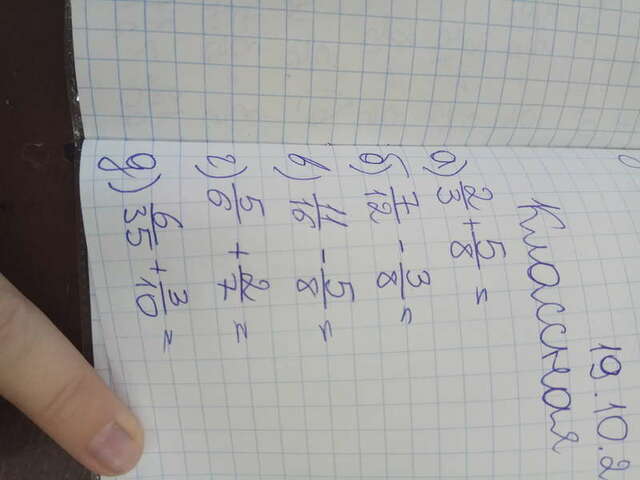 19.10.2
Классная
а) 2/3 + 5/8 =
б) 7/12 - 3/8 =
в) 11/16 - 5/8 =
г) 5/6 + 2/7 =
д) 6/35 + 3/10 =